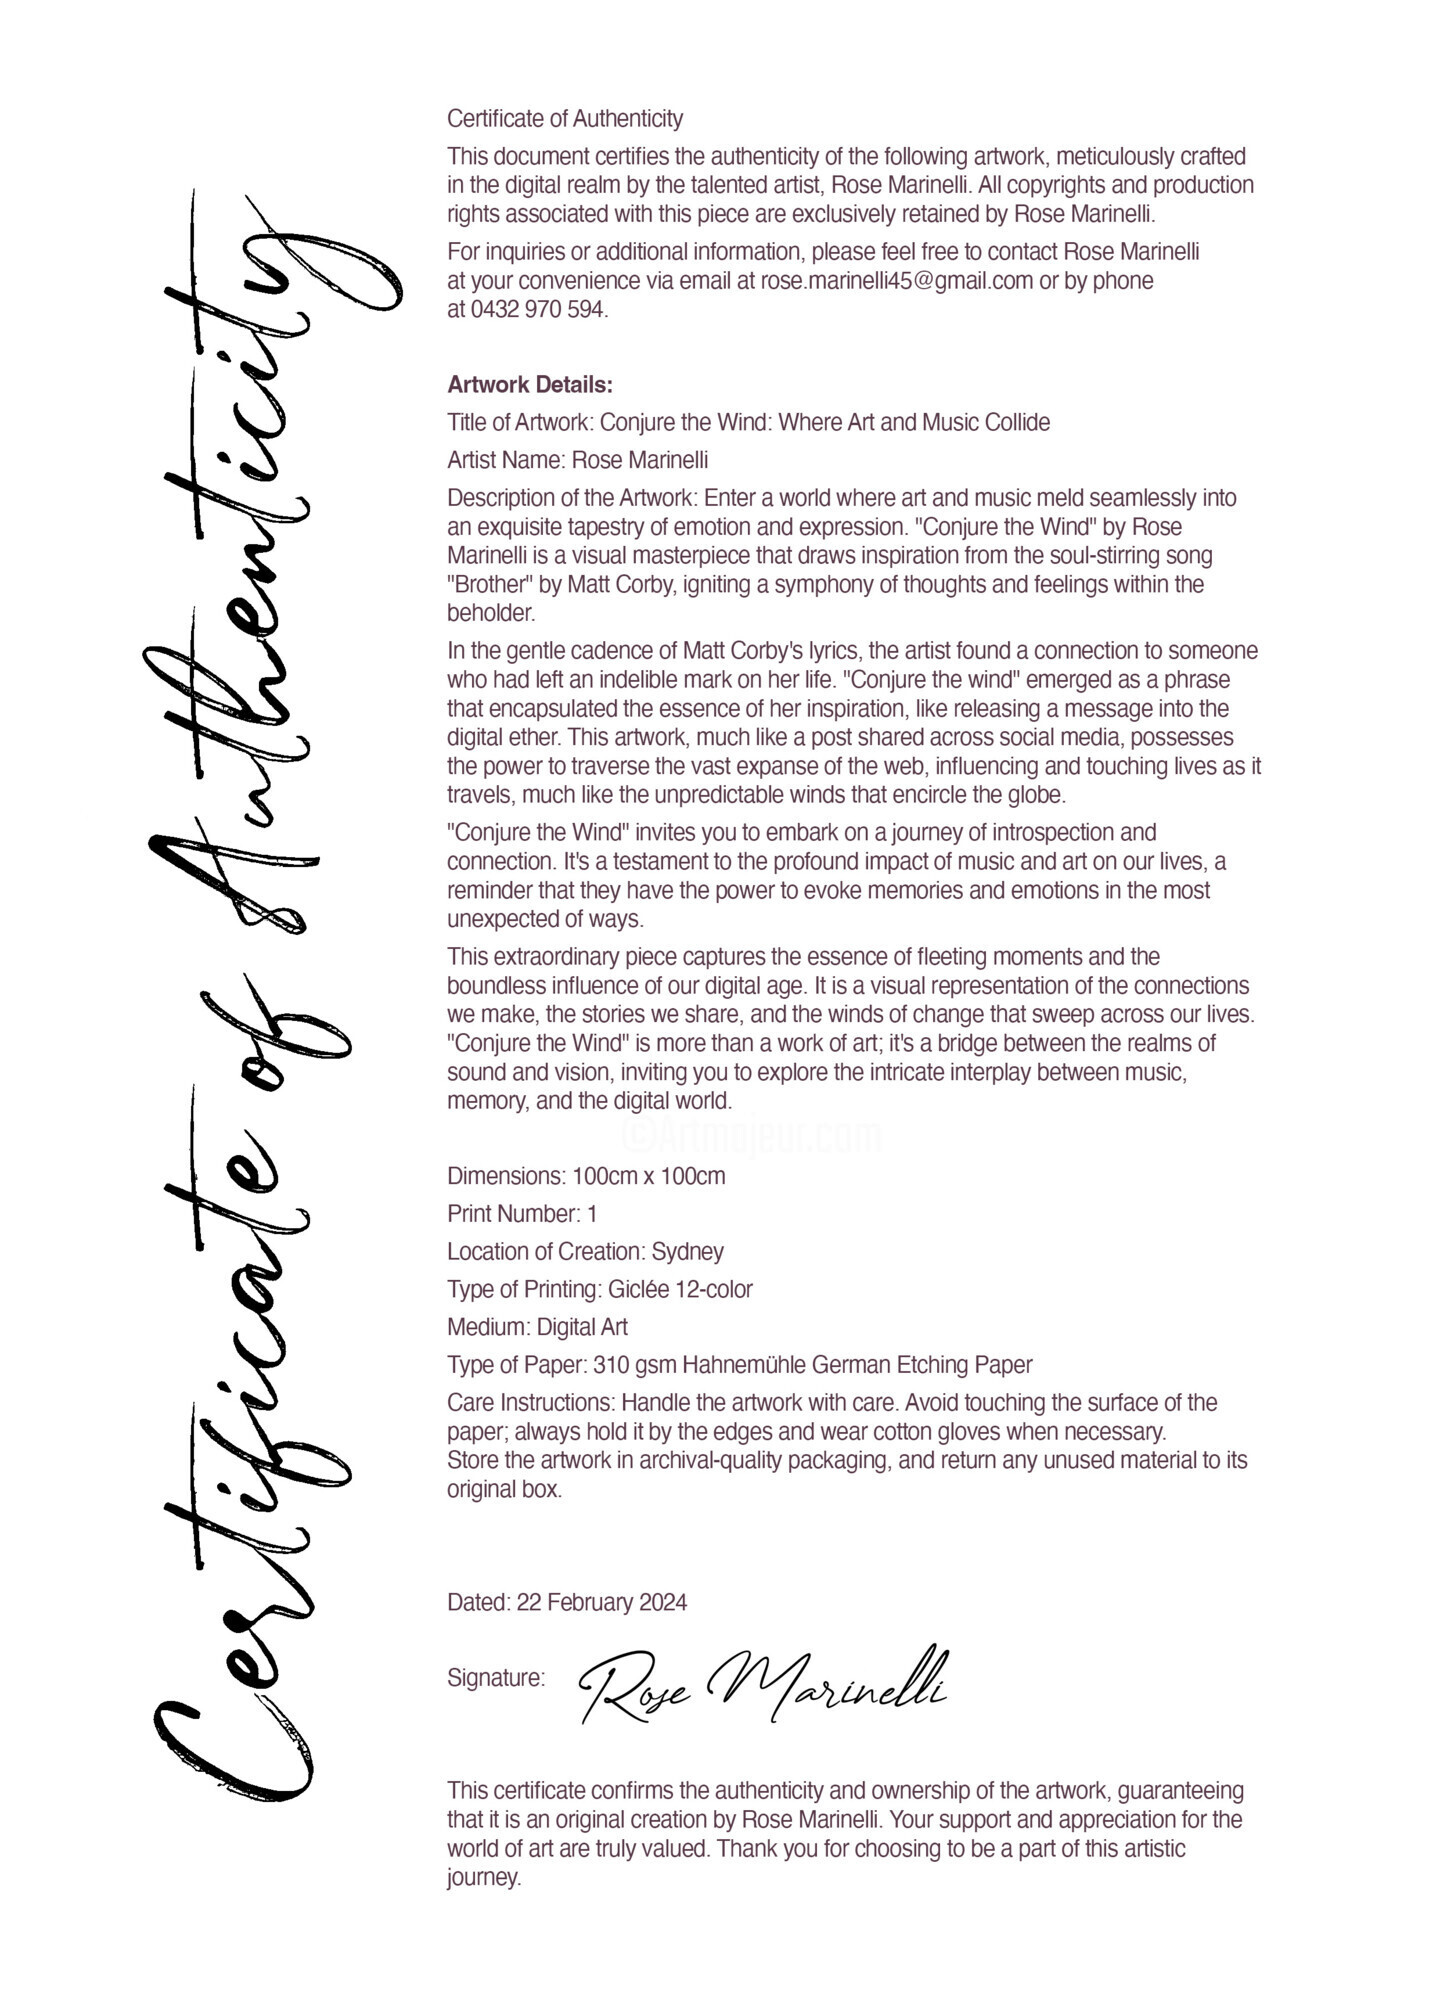 Certificate of Authenticity
Certificate of Authenticity
This document certifies the authenticity of the following artwork, meticulously crafted
in the digital realm by the talented artist, Rose Marinelli. All copyrights and production
rights associated with this piece are exclusively retained by Rose Marinelli.
For inquiries or additional information, please feel free to contact Rose Marinelli
at your convenience via email at rose.marinelli45@gmail.com or by phone
at 0432 970 594.
Artwork Details:
Title of Artwork: Conjure the Wind: Where Art and Music Collide
Artist Name: Rose Marinelli
Description of the Artwork: Enter a world where art and music meld seamlessly into
an exquisite tapestry of emotion and expression. "Conjure the Wind" by Rose
Marinelli is a visual masterpiece that draws inspiration from the soul-stirring song
"Brother" by Matt Corby, igniting a symphony of thoughts and feelings within the
beholder.
In the gentle cadence of Matt Corby's lyrics, the artist found a connection to someone
who had left an indelible mark on her life. "Conjure the wind" emerged as a phrase
that encapsulated the essence of her inspiration, like releasing a message into the
digital ether. This artwork, much like a post shared across social media, possesses
the power to traverse the vast expanse of the web, influencing and touching lives as it
travels, much like the unpredictable winds that encircle the globe.
"Conjure the Wind" invites you to embark on a journey of introspection and
connection. It's a testament to the profound impact of music and art on our lives, a
reminder that they have the power to evoke memories and emotions in the most
unexpected of ways.
This extraordinary piece captures the essence of fleeting moments and the
boundless influence of our digital age. It is a visual representation of the connections
we make, the stories we share, and the winds of change that sweep across our lives.
"Conjure the Wind" is more than a work of art; it's a bridge between the realms of
sound and vision, inviting you to explore the intricate interplay between music,
memory, and the digital world.
©Artmajeur.com
Dimensions: 100cm x 100cm
Print Number: 1
Location of Creation: Sydney
Type of Printing: Giclée 12-color
Medium: Digital Art
Type of Paper: 310 gsm Hahnemühle German Etching Paper
Care Instructions: Handle the artwork with care. Avoid touching the surface of the
paper; always hold it by the edges and wear cotton gloves when necessary.
Store the artwork in archival-quality packaging, and return any unused material to its
original box.
Dated: 22 February 2024
Signature: Rose Marinelli
This certificate confirms the authenticity and ownership of the artwork, guaranteeing
that it is an original creation by Rose Marinelli. Your support and appreciation for the
world of art are truly valued. Thank you for choosing to be a part of this artistic
journey.